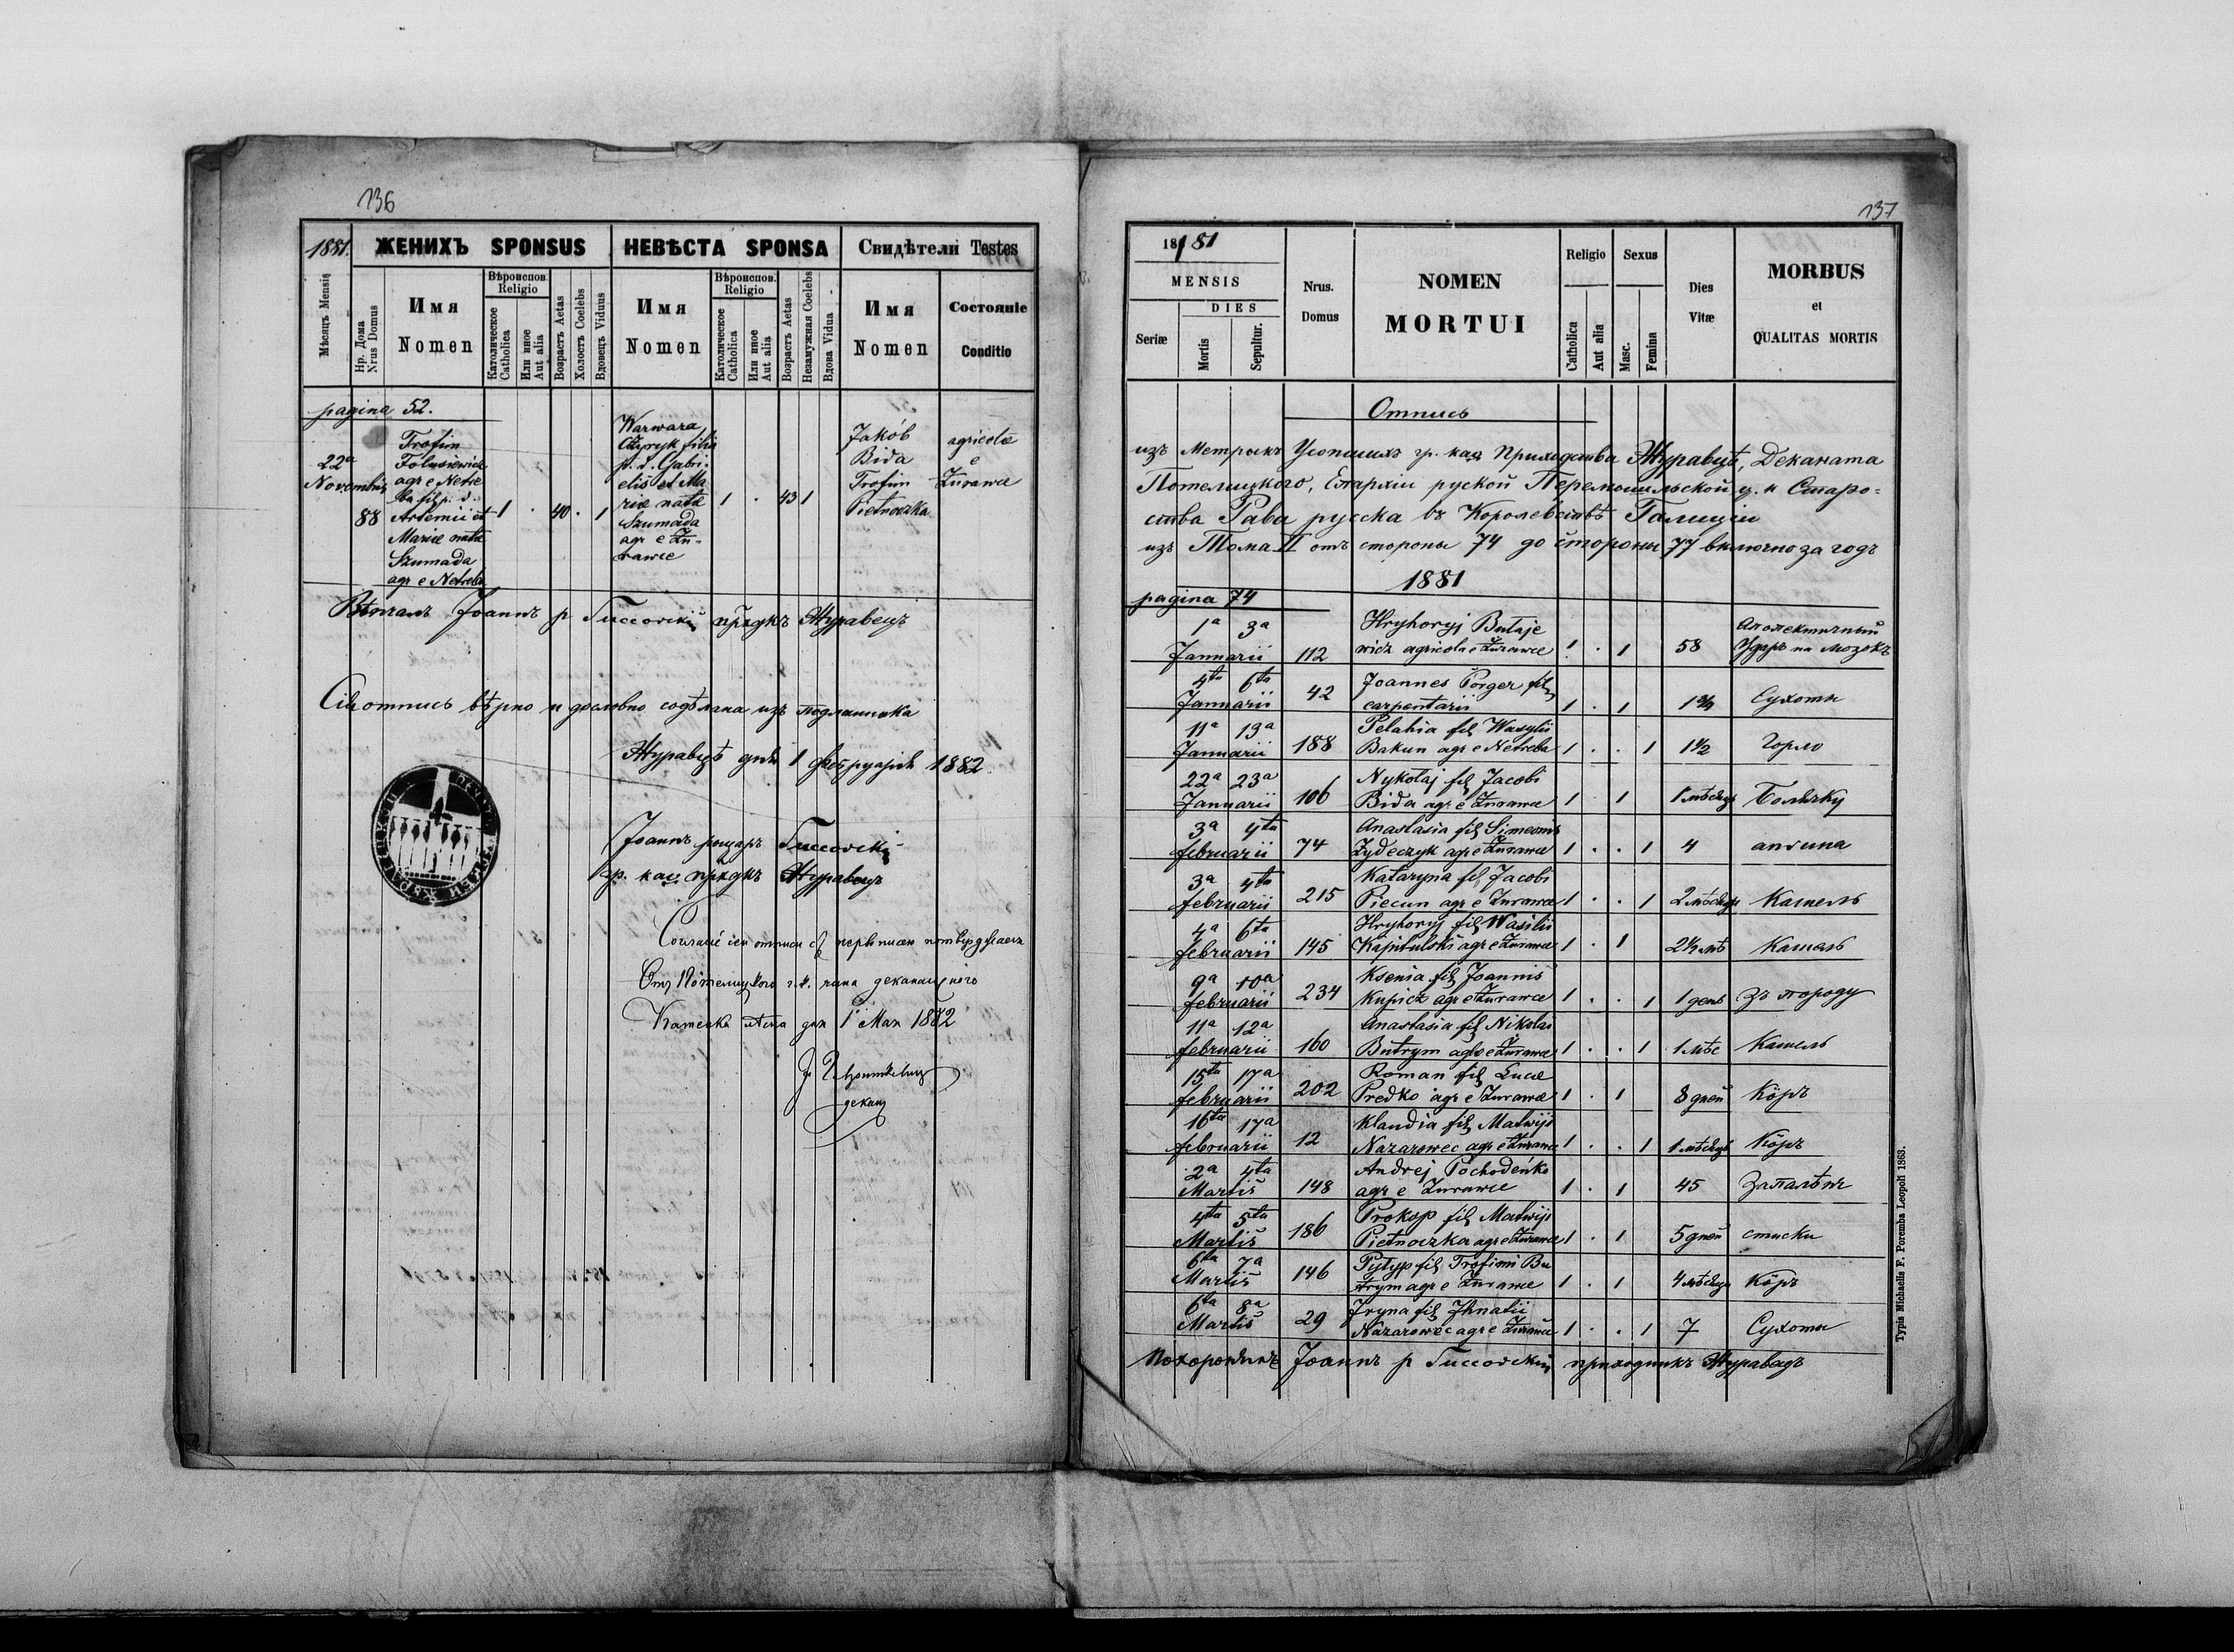 136
1881. ЖЕНИХЪ SPONSUS НЕВѢСТА SPONSA Свидѣтели Testes
Мѣсяцъ Mensis
Нр. Дома Nrus Domus
Имя Nomen
Вѣроиспов. Religio
Католическое Catholica
Или иное Aut alia
Возрастъ Aetas
Холостъ Coelebs
Вдовецъ Viduus
Имя Nomen
Вѣроиспов. Religio
Католическое Catholica
Или иное Aut alia
Возрастъ Aetas
Незамужная Coelebs
Вдова Vidua
Имя Nomen
Состояніе Conditio
pagina 52.
22a Novembris
88
Trofim
agr e Netre
ba fil p. d.
Artemii et
Mariæ natæ
Szumada
agr e Netreba
1 . 40 . 1
Warwara
Czyryk filia
p. d. Gabri-
elis et Ma
riæ natæ
Szumada
agr e Żu-
rawce
1 . 43 1
Jakób
Bida
Trofim
Pietnoczka
agricolæ
e
Żurawce
Вѣнчалъ Іоаннъ р Гиссовскій прхдкъ Журавецъ
Сія отпись вѣрно и дословно содѣлана изъ подлинника
Журавцѣ дня 1 фебруарія 1882
Іоаннъ рыцаръ Гиссовскій
гр. каѳ прхдкъ Журавецъ
Отъ Потелицкого
дня 1 Мая 1882
деканъ
137
1881
MENSIS
DIES
Seriæ
Mortis
Sepultur.
Nrus. Domus
NOMEN
MORTUI
Religio
Catholica
Aut alia
Sexus
Masc.
Femina
Dies Vitæ
MORBUS
et
QUALITAS MORTIS
Отпись
изъ Метрыкъ Усопшихъ гр. каѳ Приходства Журавцѣ, Деканата
Потелицкого, Епархіи руской Перемышльской ц. к Старо-
ства Рава русска въ Королевствѣ Галиціи
изъ Тома II отъ стороны 74 до стороны 77 включно за годъ
1881
pagina 74
1a 3a Januarii 112 Hryhoryj Butaje
wicz agricola e Żurawce 1 . 1 58 Апоплектичный
Ударъ на мозокъ
4ta 6ta Januarii 42 Joannes Porger fil
carpentarii 1 . 1 Сухоты
11a 13a Januarii 188 Pelahia fil Wasylii
Bakun agr e Netreba 1 . . 1 1½ Горло
22a 23a Januarii 106 Nykołaj fil Jacobi
Bida agr e Żurawce 1 1 1 мѣсяцъ Болячку
3a 4ta februarii 74 Anastasia fil Simeonis
Zydeczyk agr e Żurawce 1 . . 1 4 ангина
3a 4ta februarii 215 Kataryna fil Jacobi
Piecun agr e Żurawce 1 . . 1 2 мѣсяцы Кашель
4a 6ta februarii 145 Hryhoryj fil Wasilii
Kapitulski agr e Żurawce 1 . 1 2½ мѣ Кашель
9a 10a februarii 234 Ksenia fil Joannis
Kupicz agr e Żurawce 1 . . 1 1 день Зъ породу
11a 12a februarii 160 Anastasia fil Nikolai
Butrym agr e Żurawce 1 . . 1 1 мѣс Кашель
15ta 17a februarii 202 Roman fil Lucæ
Predko agr e Żurawce 1 . 1 8 дней Кôръ
16ta 17a februarii 12 Klaudia fil Matwiji
Nazarowec agr e Żurawce 1 . . 1 1 мѣсяцъ Кôръ
2a 4ta Martis 148 Andrej Pochodeńko
agr e Żurawce 1 . 1 45 Запалѣнє
4ta 5ta Martis 186 Prokop fil Matwiji
Pietnoczka agr e Żurawce 1 . 1 5 дней стиски
6ta 7a Martis 146 Pyłyp fil Trofimi Bu
trym agr e Żurawce 1 . 1 4 мѣсяцы Кôръ
6ta 8a Martis 29 Iryna fil Ihnatii
Nazarowec agr e Żurawce 1 . . 1 7 Сухоты
Похоронилъ Іоаннъ р Гиссовскій приходникъ Журавецъ
Typis Michaelis F. Poremba Leopoli 1863.